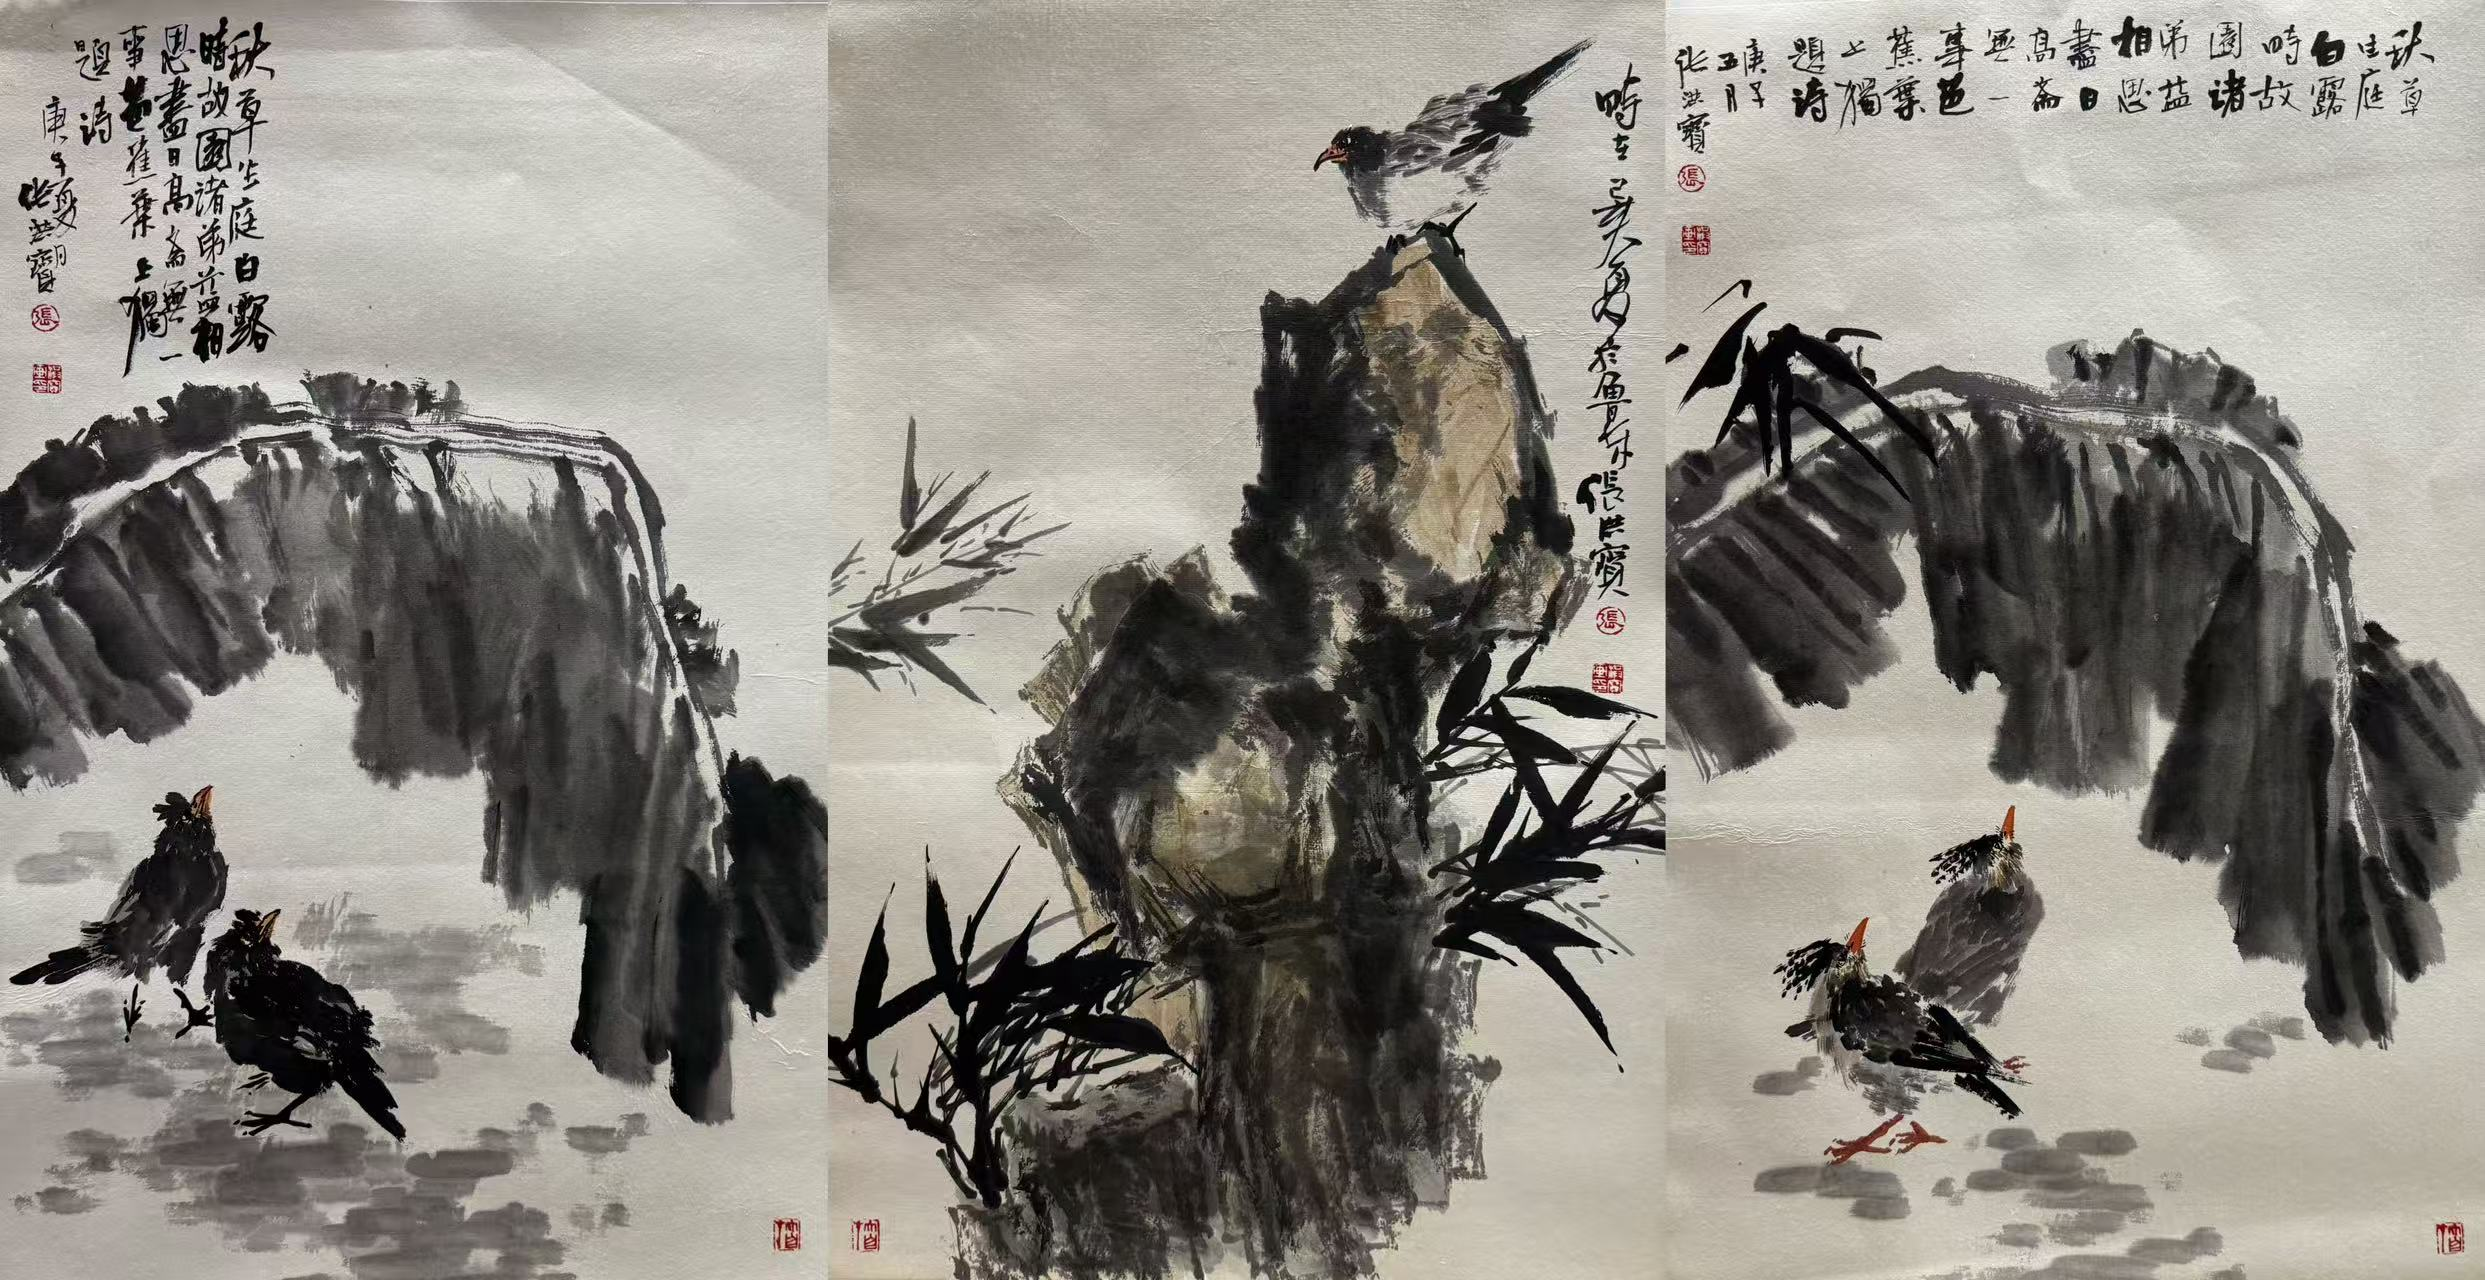 秋草生庭白露
時故園诸弟益相
思盡日高斋無一
事芭蕉葉上獨
題诗
庚子夏月
张洪寶
張
時在己亥夏於
张洪寶
張
秋草
生庭
白露
時故
園诸
弟益
相思
盡日
高斋
無一
事芭
蕉葉
上獨
題诗
庚子
五月
张洪寶
張